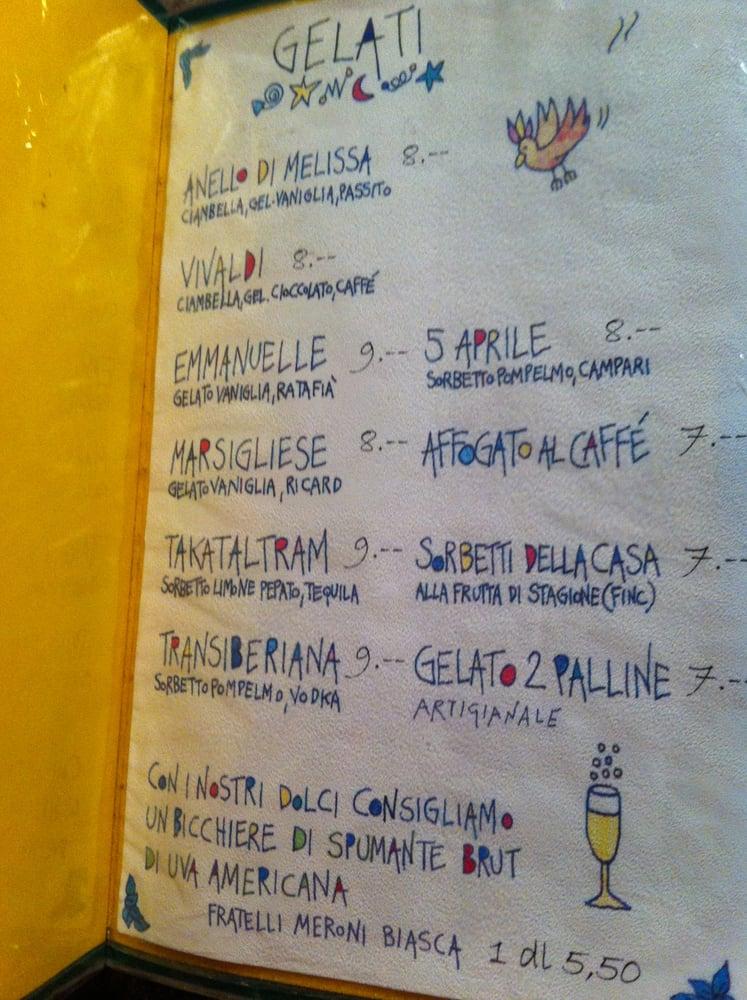 GELATI
ANELLO DI MELISSA 8.--
CIAMBELLA, GEL. VANIGLIA, PASSITO
VIVALDI 8.--
CIAMBELLA, GEL. CIOCCOLATO, CAFFÉ
EMMANUELLE 9.--
GELATO VANIGLIA, RATAFIÀ
MARSIGLIESE 8.--
GELATO VANIGLIA, RICARD
TAKATALTRAM 9.--
SORBETTO LIMONE PEPATO, TEQUILA
TRANSIBERIANA 9.--
SORBETTO POMPELMO, VODKA
5 APRILE 8.--
SORBETTO POMPELMO, CAMPARI
AFFOGATO AL CAFFÉ 7.--
SORBETTI DELLA CASA 7.--
ALLA FRUTTA DI STAGIONE (FINC)
GELATO 2 PALLINE 7.--
ARTIGIANALE
CON I NOSTRI DOLCI CONSIGLIAMO
UN BICCHIERE DI SPUMANTE BRUT
DI UVA AMERICANA
FRATELLI MERONI BIASCA 1 dl 5,50